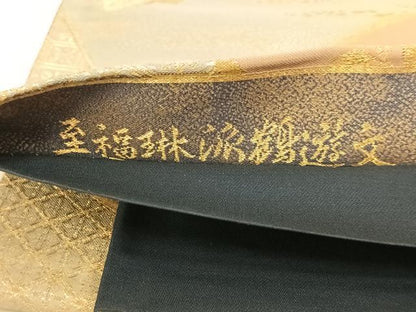 至福琳派鶴遊文